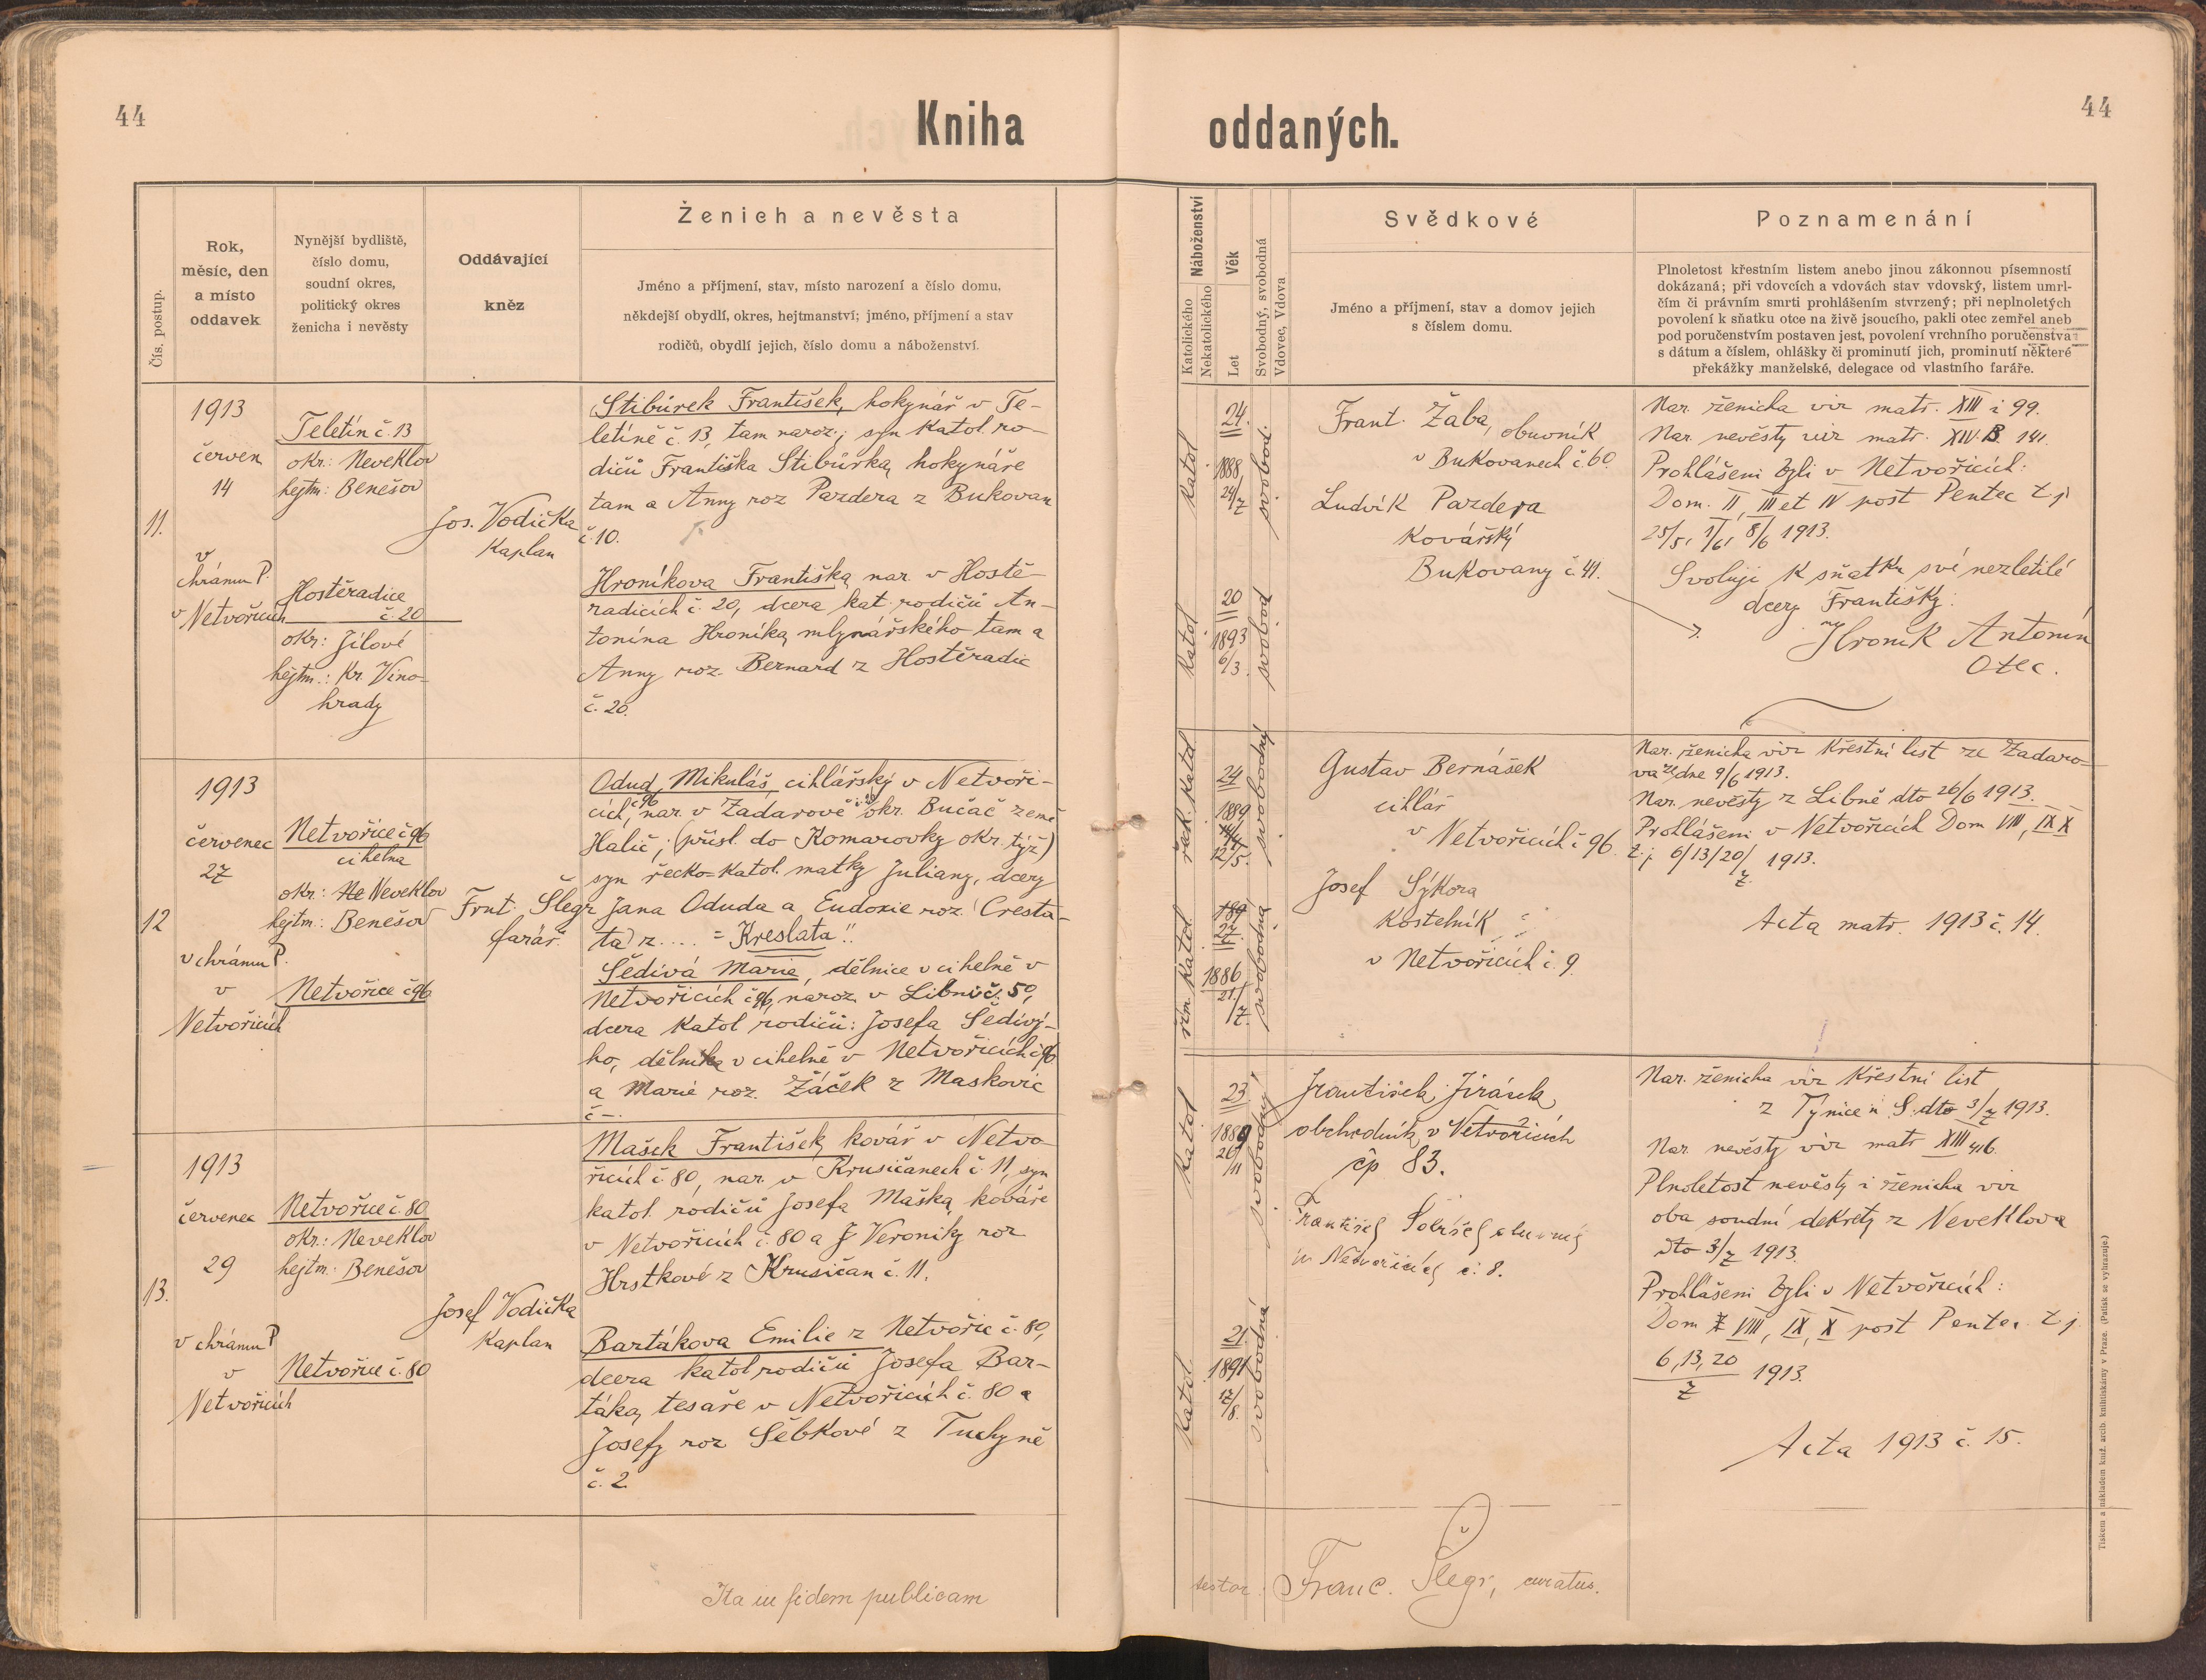 44
Kniha
oddaných.
44
Čís. postup.
Rok,
měsíc, den
a místo
oddavek
Nynější bydliště,
číslo domu,
soudní okres,
politický okres
ženicha i nevěsty
Oddávající
kněz
Ženich a nevěsta
Jméno a příjmení, stav, místo narození a číslo domu,
někdejší obydlí, okres, hejtmanství; jméno, příjmení a stav
rodičů, obydlí jejich, číslo domu a náboženství.
Náboženství
Katolického
Nekatolického
Věk
Let
Svobodný, svobodná
Vdovec, Vdova
Svědkové
Jméno a příjmení, stav a domov jejich
s číslem domu.
Poznamenání
Plnoletost křestním listem anebo jinou zákonnou písemností
dokázaná; při vdovcích a vdovách stav vdovský, listem umrl-
čím či právním smrti prohlášením stvrzený; při neplnoletých
povolení k sňatku otce na živě jsoucího, pakli otec zemřel aneb
pod poručenstvím postaven jest, povolení vrchního poručenstva
s dátum a číslem, ohlášky či prominutí jich, prominutí některé
překážky manželské, delegace od vlastního faráře.
11.
1913
červen
14
v
chrámu P.
v Netvořicích
Teletín č. 13
okr: Neveklov
hejtm: Benešov
Hostěradice
č. 20
okr: Jílové
hejtm.: Kr. Vino-
hrady
Jos. Vodička
Kaplan
Stibůrek František, hokynář v Te-
letíně č. 13, tam naroz.; syn katol. ro-
dičů Františka Stibůrka, hokynáře
tam a Anny roz Pazdera z Bukovan
č. 10.
Hroníkova Františka nar. v Hostě-
radicích č. 20, dcera kat. rodičů An-
tonína Hroníka, mlynářského tam a
Anny roz. Bernard z Hostěradic
č. 20.
Katol
24.
1888
24/7
svobod.
Katol
20
1893
6/3.
svobod
Frant. Žaba, obuvník
v Bukovanech č. 60.
Ludvík Pazdera
Kovářský
Bukovany č. 41.
Nar. ženicha viz matr. XIII i 99.
Nar. nevěsty viz matr. XIV. B. 141.
Prohlášeni byli v Netvořicích:
Dom. II, III et IV post Pentec t. j
25/5, 1/6, 8/6 1913.
Svoluji k sňatku své nezletilé
dcery Františky:
Hroník Antonín
Otec.
12
1913
červenec
27
v chrámu P.
v
Netvořicích
Netvořice č 96
cihelna
okr: Ne Neveklov
hejtm: Benešov
Netvořice č 96
Frnt. Šlegr
farář.
Odud Mikuláš, cihlářský v Netvoři-
cích, č 96 nar. v Zadarově č. 20 okr. Bučač země
Halič; (přísl. do Komarovky okr. týž)
syn řecko-katol. matky Juliany, dcery
Jana Oduda a Eudoxie roz. (Cresta-
ta) z.... = Kreslata!!
Šedivá Marie, dělnice v cihelně v
Netvořicích č 96, naroz v Libni č. 50,
dcera katol rodičů: Josefa Šedivý-
ho, dělníka v cihelně v Netvořicích č 96
a Marie roz. Žáček z Maskovic
č —.
řeck. katol.
24
1889
12/5.
svobodný
řím. katol
27.
1886
21./7.
svobodná
Gustav Bernášek
cihlář
v Netvořicích č 96.
Josef Sýkora
kostelník
v Netvořicích č. 9.
Nar. ženicha viz křestní list ze Zadaro-
va ze dne 9/6 1913.
Nar. nevěsty z Libně dto 26/6 1913.
Prohlášeni v Netvořicích Dom VIII, IX X
t. j. 6/13/20/7. 1913.
Acta matr. 1913 č. 14.
13.
1913
červenec
29
v chrámu P
v
Netvořicích
Netvořice č. 80
okr.: Neveklov
hejtm: Benešov
Netvořice č. 80
Josef Vodička
Kaplan
Mašek František, kovář v Netvo
řicích č. 80, nar. v Krusičanech č. 11, syn
katol. rodičů Josefa Maška, kováře
v Netvořicích č. 80 a Veroniky roz
Hrstkové z Krusičan č. 11.
Bartákova Emilie z Netvořic č. 80,
dcera katol rodičů Josefa Bar-
táka, tesaře v Netvořicích č. 80 a
Josefy roz Šebkové z Tuchyně
č. 2.
Katol
23
1889
26/11
svobodný
Katol
21.
1891
17/8.
svobodná
František Jirásek,
obchodník v Netvořicích
čp 83.
v Netvořicích č. 8.
Nar. ženicha viz křestní list
z Týnice n S. dto 3/7 1913.
Nar. nevěsty viz matr XIII 416.
Plnoletost nevěsty i ženicha viz
oba soudní dekrety z Neveklova
dto 3/7 1913.
Prohlášeni byli v Netvořicích:
Dom VIII, IX, X post Pentec. t. j.
6, 13, 20/7 1913.
Acta 1913 č. 15.
Ita in fidem publicam
testor: Franc. Šlegr, curatus.
Tiskem a nákladem kníž. arcib. knihtiskárny v Praze. (Patisk se vyhrazuje.)